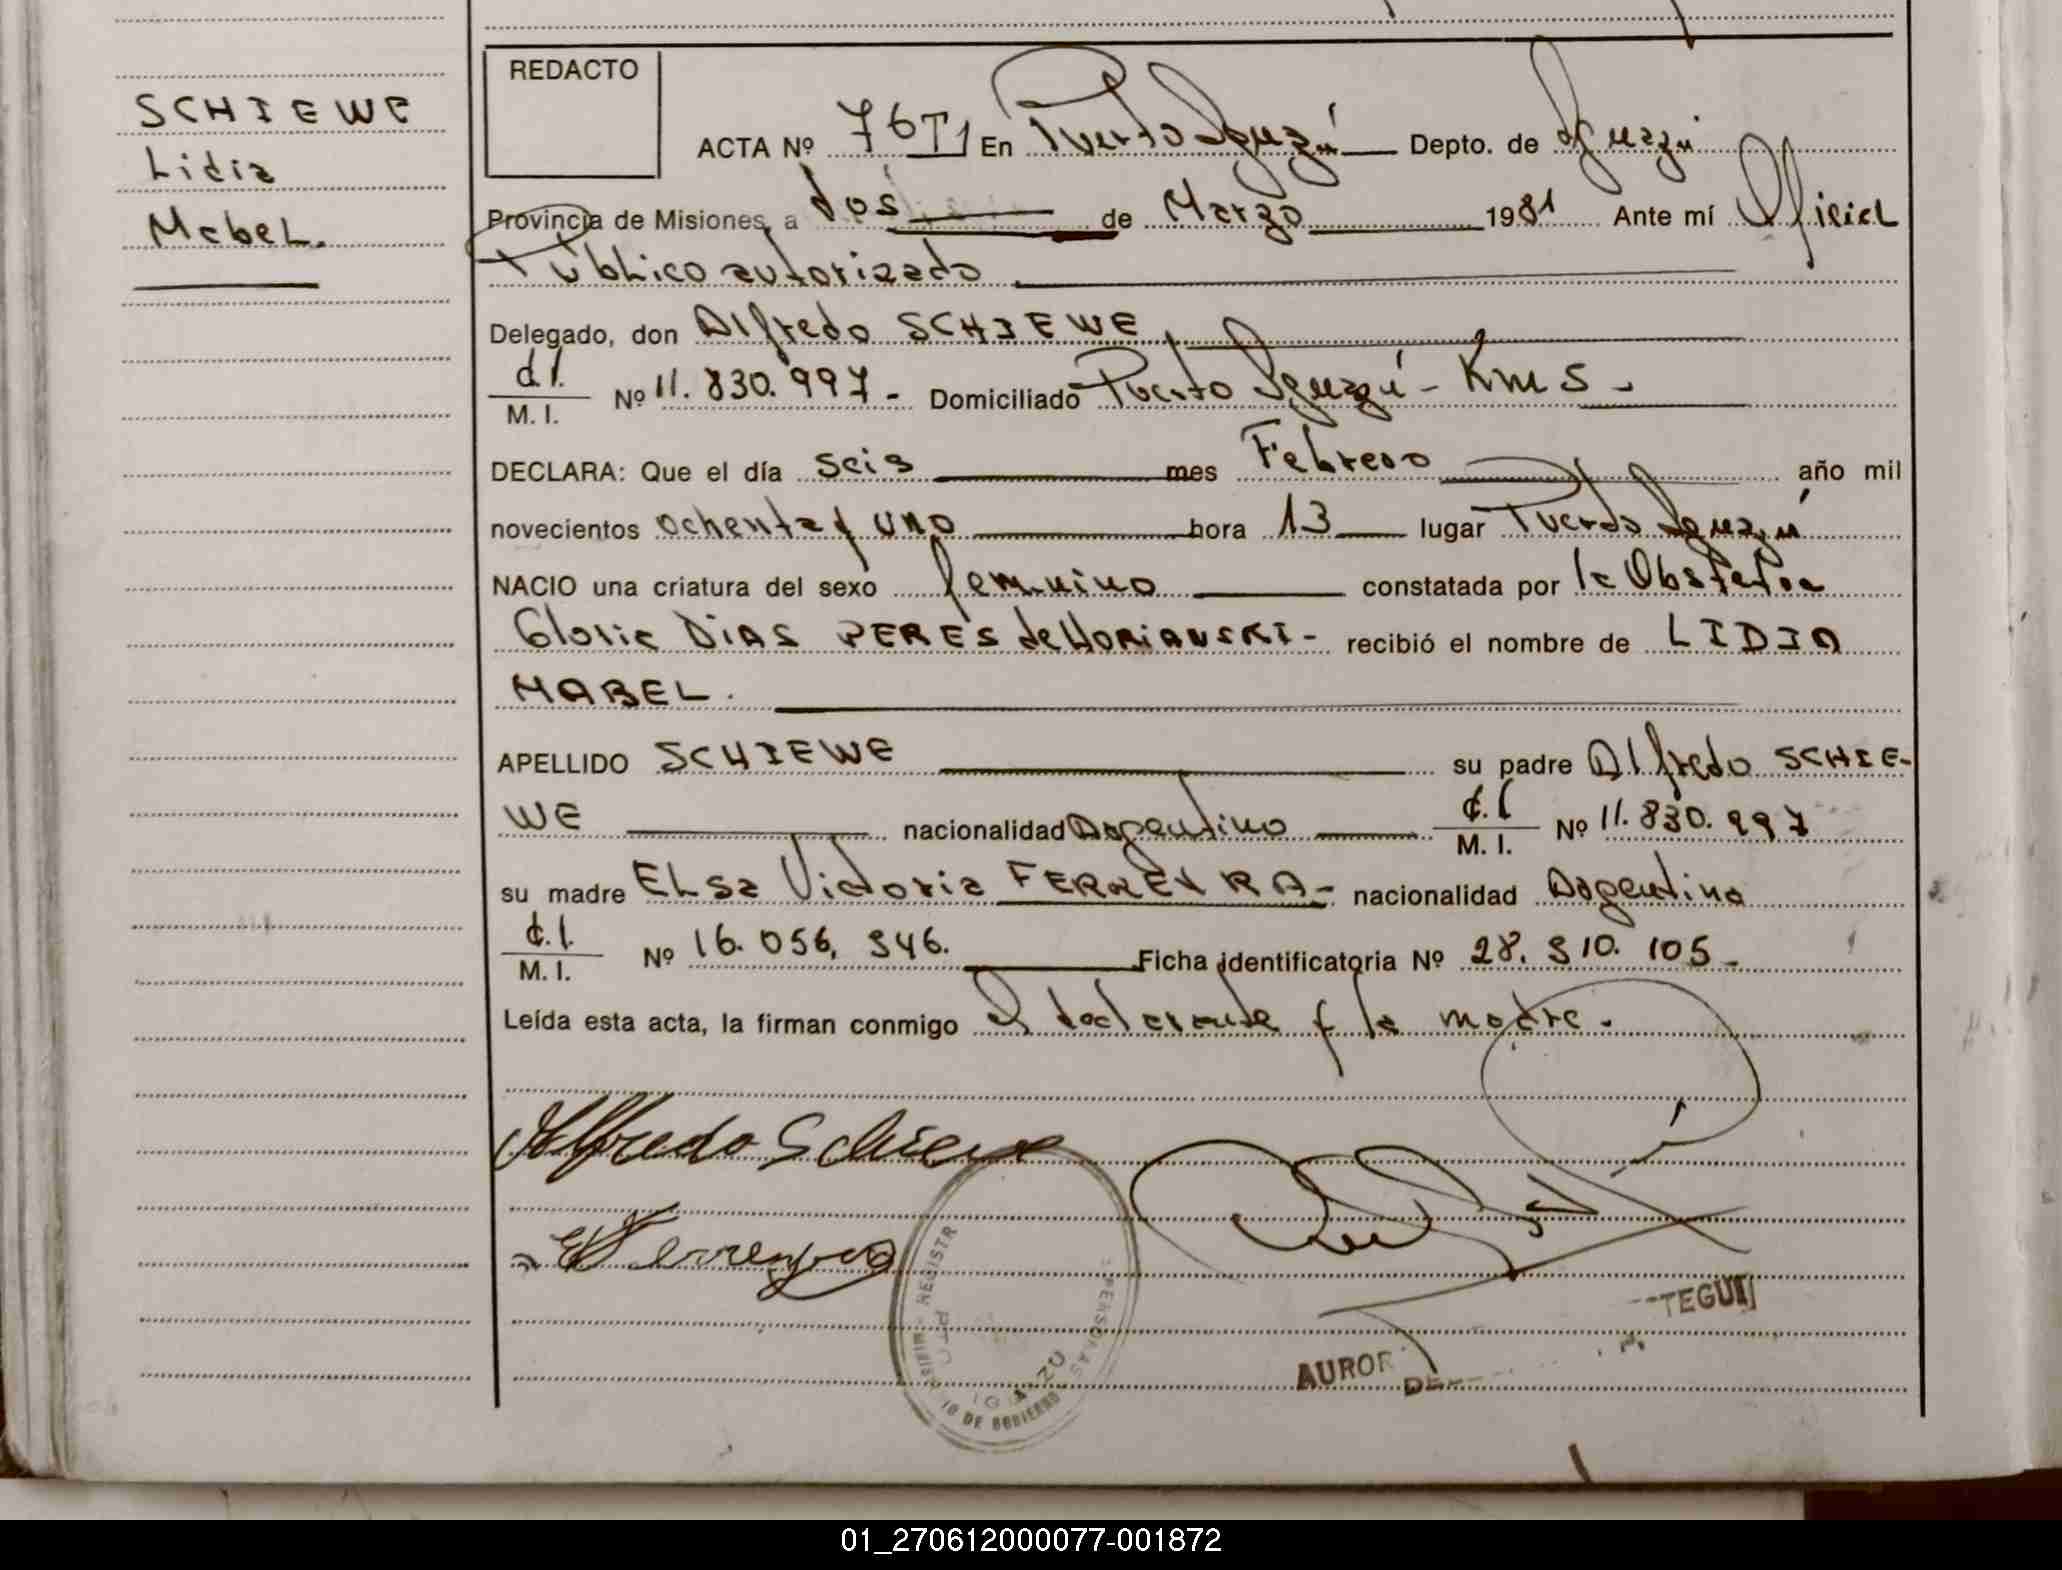 SCHIEWE
Lidia
Mabel.
REDACTO
ACTA Nº 76T1 En Puerto Iguazú Depto. de Iguazú
Provincia de Misiones, a dos de Marzo 1981 Ante mí Oficial
Público autorizado
Delegado, don Alfredo SCHIEWE
d.I.
M. I. Nº 11.830.997- Domiciliado Puerto Iguazú - Km 5 -
DECLARA: Que el día seis mes Febrero año mil
novecientos ochenta y uno hora 13 lugar Puerto Iguazú
NACIO una criatura del sexo femenino constatada por la Obstetra
Gloria DIAS PERES de HORIANSKI- recibió el nombre de LIDIA
MABEL.
APELLIDO SCHIEWE su padre Alfredo SCHIE-
WE nacionalidad Argentino d.I.
M. I. Nº 11.830.997
su madre Elsa Victoria FERREYRA- nacionalidad Argentina
d.I.
M. I. Nº 16.056.346. Ficha identificatoria Nº 28.310.105-
Leída esta acta, la firman conmigo el declarante y la madre.
Alfredo Schiewe
E Ferreyra
REGISTR PERSONAS
IGUAZU
MINISTERIO DE GOBIERNO
TEGUI
AUROR
01_270612000077-001872